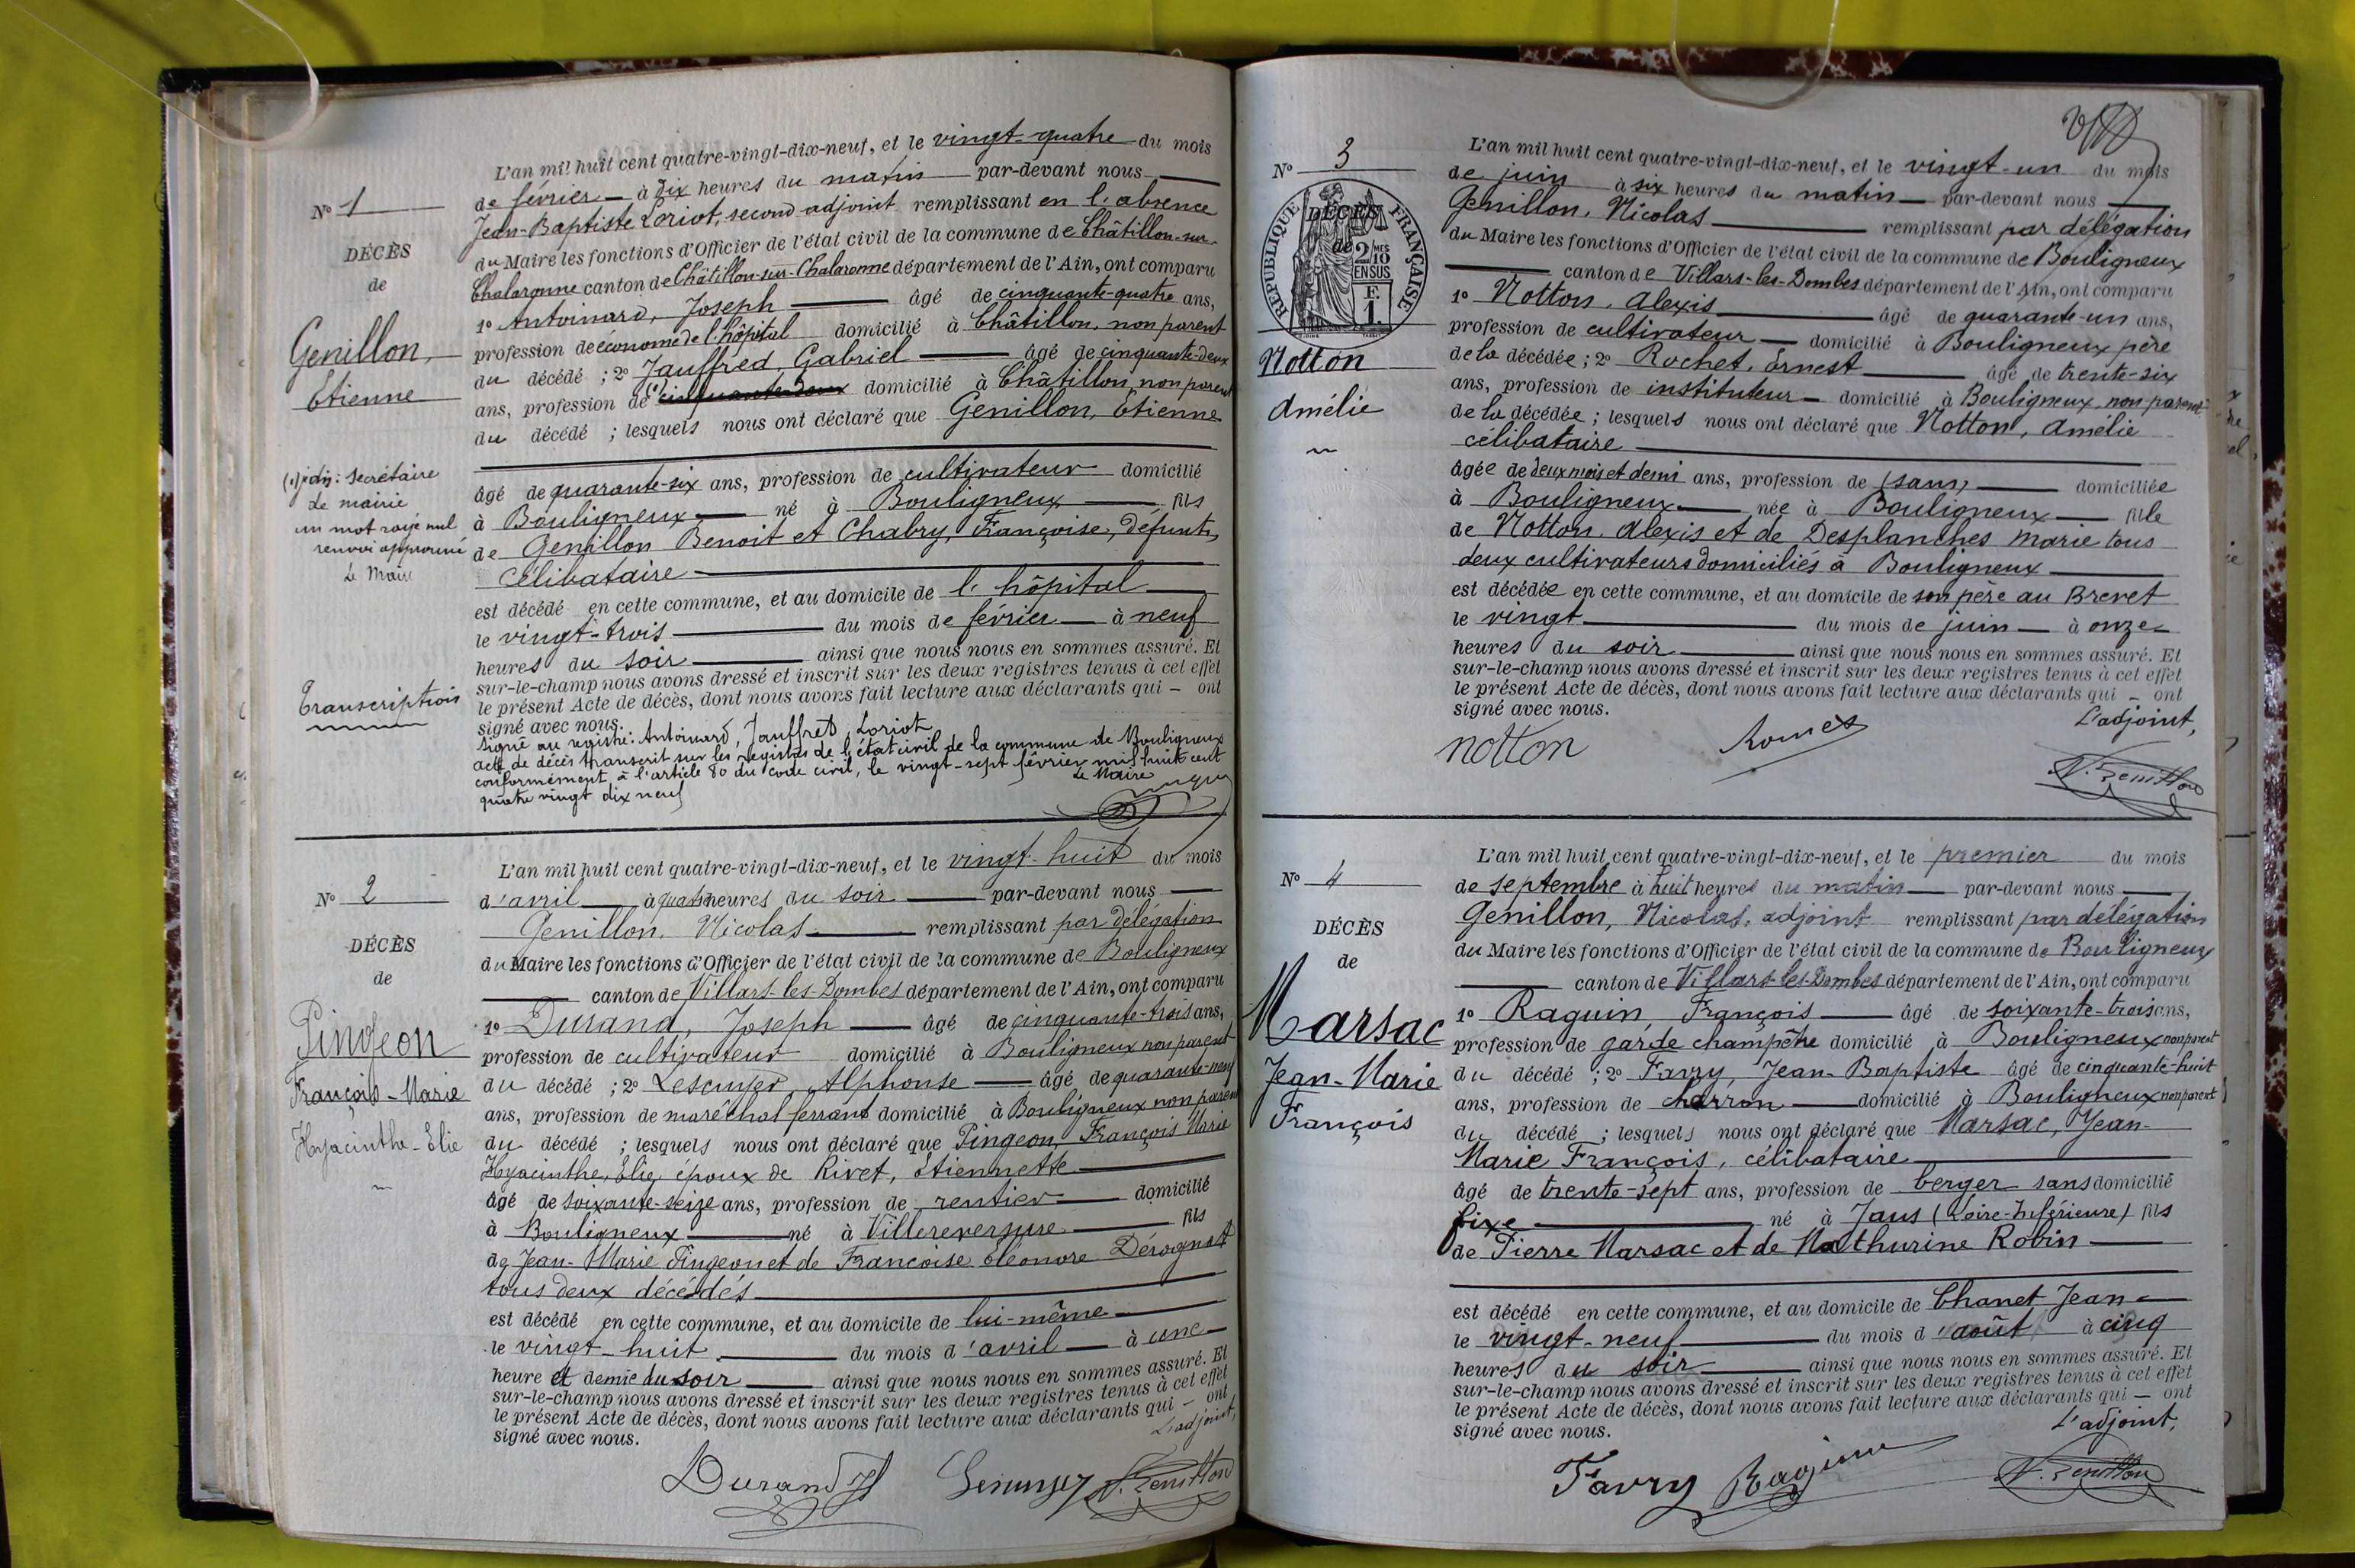 L'an mil huit cent quatre-vingt-dix-neuf, et le vingt-quatre du mois
de février à dix heures du matin par-devant nous
Jean-Baptiste Loriot, second adjoint remplissant en l'absence
du Maire les fonctions d'Officier de l'état civil de la commune de Châtillon-sur-
Chalaronne canton de Châtillon-sur-Chalaronne département de l'Ain, ont comparu
1º Antoinard, Joseph âgé de cinquante-quatre ans,
profession de économe de l'hôpital domicilié à Châtillon, non parent
du décédé ; 2º Jauffred, Gabriel âgé de cinquante-deux
ans, profession de (1) cinquante deux domicilié à Châtillon, non parent
du décédé ; lesquels nous ont déclaré que Genillon, Etienne
âgé de quarante-six ans, profession de cultivateur domicilié
à Bouligneux né à Bouligneux fils
de Genillon Benoit et Chabry, Françoise, défunts,
célibataire
est décédé en cette commune, et au domicile de l'hôpital
le vingt-trois du mois de février à neuf
heures du soir ainsi que nous nous en sommes assuré. Et
sur-le-champ nous avons dressé et inscrit sur les deux registres tenus à cet effet
le présent Acte de décès, dont nous avons fait lecture aux déclarants qui — ont
signé avec nous.
Signé au registre: Antoinard, Jauffred, Loriot
acte de décès transcrit sur les registres de l'état civil de la commune de Bouligneux
conformément à l'article 80 du code civil, le vingt-sept février mil huit cent
quatre vingt dix neuf
Le Maire
Nº 1
DÉCÈS
de
Genillon,
Etienne
(1) : secrétaire
de mairie
un mot rayé nul
renvoi approuvé
Le Maire
Transcription
L'an mil huit cent quatre-vingt-dix-neuf, et le vingt-huit du mois
d'avril à quatre heures du soir par-devant nous
Genillon, Nicolas remplissant par délégation
du Maire les fonctions d'Officier de l'état civil de la commune de Bouligneux
canton de Villars-les-Dombes département de l'Ain, ont comparu
1º Durand, Joseph âgé de cinquante-trois ans,
profession de cultivateur domicilié à Bouligneux non parent
du décédé ; 2º Lescuyer, Alphonse âgé de quarante-neuf
ans, profession de maréchal ferrant domicilié à Bouligneux non parent
du décédé ; lesquels nous ont déclaré que Pingeon, François Marie
Hyacinthe, Elie, époux de Rivet, Etiennette
âgé de soixante-seize ans, profession de rentier domicilié
à Bouligneux né à Villereversure fils
de Jean-Marie Pingeon et de Françoise Eléonore
tous deux décédés
est décédé en cette commune, et au domicile de lui-même
le vingt-huit du mois d'avril à une
heure et demie du soir ainsi que nous nous en sommes assuré. Et
sur-le-champ nous avons dressé et inscrit sur les deux registres tenus à cet effet
le présent Acte de décès, dont nous avons fait lecture aux déclarants qui — ont
signé avec nous.
L'adjoint,
Durand
N. Genillon
Nº 2
DÉCÈS
de
Pingeon
François-Marie
Hyacinthe-Elie
L'an mil huit cent quatre-vingt-dix-neuf, et le vingt-un du mois
de juin à six heures du matin par-devant nous
Genillon, Nicolas remplissant par délégation
du Maire les fonctions d'Officier de l'état civil de la commune de Bouligneux
canton de Villars-les-Dombes département de l'Ain, ont comparu
1º Notton, Alexis âgé de quarante-un ans,
profession de cultivateur domicilié à Bouligneux père
de la décédée ; 2º Rochet, Ernest âgé de trente-six
ans, profession de instituteur domicilié à Bouligneux, non parent
de la décédée ; lesquels nous ont déclaré que Notton, Amélie
célibataire
âgée de deux mois et demi ans, profession de (sans) domiciliée
à Bouligneux née à Bouligneux fille
de Notton, Alexis et de Desplanches Marie tous
deux cultivateurs domiciliés à Bouligneux
est décédée en cette commune, et au domicile de son père au Brevet
le vingt du mois de juin à onze
heures du soir ainsi que nous nous en sommes assuré. Et
sur-le-champ nous avons dressé et inscrit sur les deux registres tenus à cet effet
le présent Acte de décès, dont nous avons fait lecture aux déclarants qui — ont
signé avec nous.
L'adjoint,
notton
N. Genillon
Nº 3
RÉPUBLIQUE FRANÇAISE
DÉCÈS
de
2/10 MES
EN SUS
F.
1.
Notton
Amélie
L'an mil huit cent quatre-vingt-dix-neuf, et le premier du mois
de septembre à huit heures du matin par-devant nous
Genillon, Nicolas, adjoint remplissant par délégation
du Maire les fonctions d'Officier de l'état civil de la commune de Bouligneux
canton de Villars-les-Dombes département de l'Ain, ont comparu
1º Raguin, François âgé de soixante-trois ans,
profession de garde champêtre domicilié à Bouligneux non parent
du décédé ; 2º Favry, Jean-Baptiste âgé de cinquante-huit
ans, profession de charron domicilié à Bouligneux non parent
du décédé ; lesquels nous ont déclaré que Marsac, Jean-
Marie François, célibataire
âgé de trente-sept ans, profession de berger sans domicilié
fixe né à Jans (Loire-Inférieure) fils
de Pierre Marsac et de Mathurine Robin
est décédé en cette commune, et au domicile de Chanet Jean
le vingt-neuf du mois d'août à cinq
heures du soir ainsi que nous nous en sommes assuré. Et
sur-le-champ nous avons dressé et inscrit sur les deux registres tenus à cet effet
le présent Acte de décès, dont nous avons fait lecture aux déclarants qui — ont
signé avec nous.
L'adjoint,
Favry Raguin
N. Genillon
Nº 4
DÉCÈS
de
Marsac
Jean-Marie
François